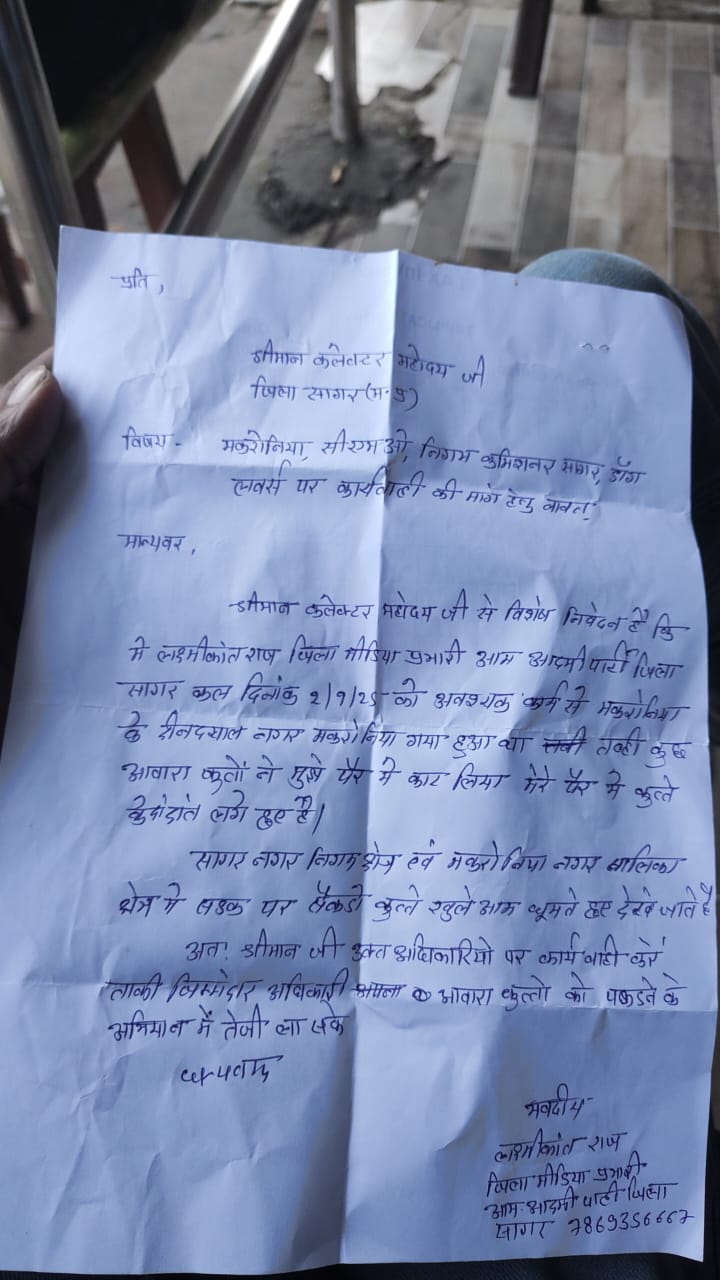 प्रति,
श्रीमान कलेक्टर महोदय जी
जिला सागर (म.प्र)
विषय - मकरोनिया, सीएमओ, निगम कमिशनर सागर, डॉग
लवर्स पर कार्यवाही की मांग हेतु बावत्
मान्यवर,
श्रीमान कलेक्टर महोदय जी से विशेष निवेदन है कि
मे लक्ष्मीकांत राज जिला मीडिया प्रभारी आम आदमी पार्टी जिला
सागर कल दिनांक 2/9/25 को अवश्यक कार्य से मकरोनिया
के दीनदयाल नगर मकरोनिया गया हुआ था तब्ही कुछ
आवारा कुत्तों ने मुझे पैर मे काट लिया मेरे पैर मे कुत्ते
के दांत लगे हुए है।
सागर नगर निगम क्षेत्र एवं मकरोनिया नगर पालिका
क्षेत्र मे सडक पर सैकडो कुत्ते खुले आम घूमते हुए देखे जाते है
अतः श्रीमान जी उक्त अधिकारियो पर कार्यवाही करें
ताकी जिम्मेदार अधिकारी आवारा कुत्तो को पकडने के
अभियान में तेजी ला सके
धन्यवाद
भवदीय
लक्ष्मीकांत राज
जिला मीडिया प्रभारी
आम आदमी पार्टी जिला
सागर 7869356667